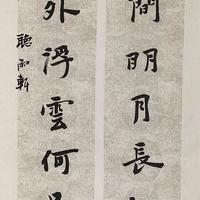 間明月長
外浮雲何
聽雨軒